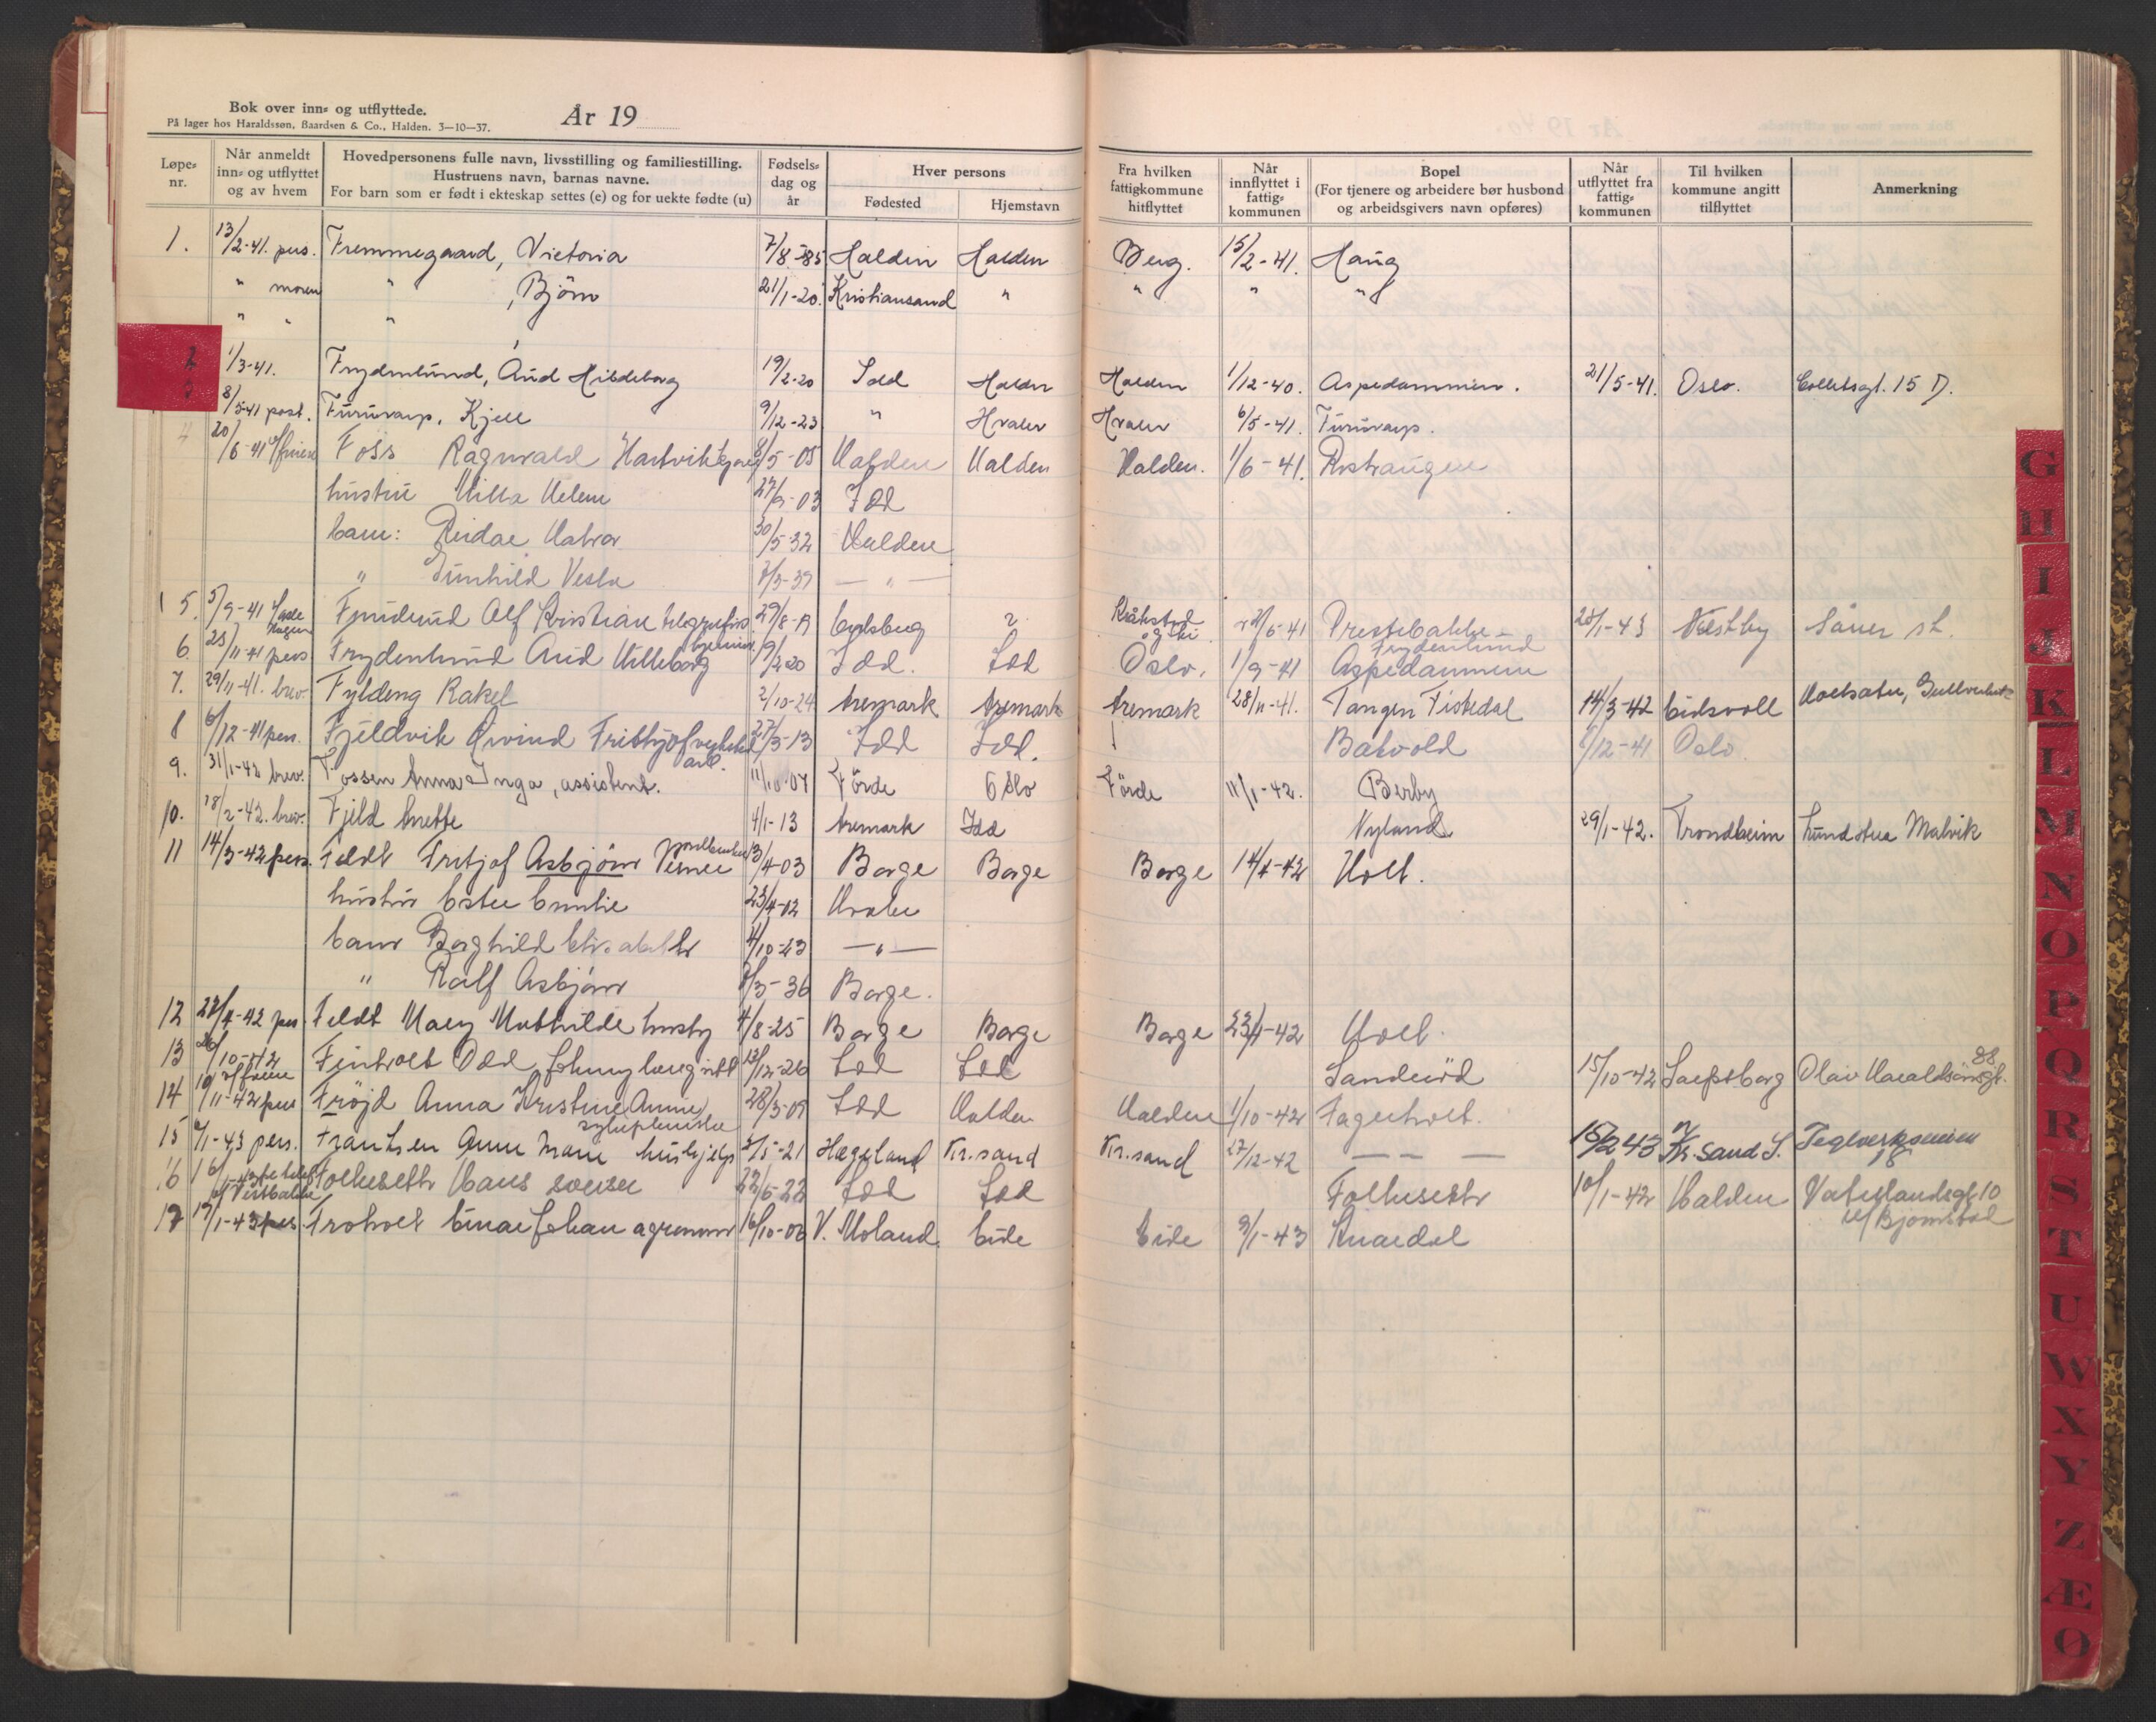 Bok over inn- og utflyttede.
På lager hos Haraldssøn, Baardsen & Co., Halden. 3—10—37.
År 19
Løpe-nr. Når anmeldt inn- og utflyttet og av hvem Hovedpersonens fulle navn, livsstilling og familiestilling. Hustruens navn, barnas navne. For barn som er født i ekteskap settes (e) og for uekte fødte (u) Fødsels-dag og år Hver persons Fødested Hjemstavn Fra hvilken fattigkommune hitflyttet Når innflyttet i fattig-kommunen Bopel (For tjenere og arbeidere bør husbond og arbeidsgivers navn opføres) Når utflyttet fra fattig-kommunen Til hvilken kommune angitt tilflyttet Anmerkning
1. 13/2-41. pers. Fremmegaard, Victoria 7/8-85 Halden Halden Berg. 15/2-41. Haug
" moren " , Bjørn 21/1-20. Kristiansand " " " "
" " "
2 1/3-41. Frydenlund, Aud Hildeborg 19/2-20 Idd Halden Halden 1/12-40. Aspedammen. 21/5-41. Oslo. Colletsgt. 15 D.
3 8/5-41 post. Furuvarp, Kjell 9/12-23 " Hvaler Hvaler 6/5-41. Furuvarp.
4 20/6-41 Foss Ragnvald Hartvik 8/5-05 Halden Halden Halden. 1/6-41.
hustru Milla Helene 27/9-03 Idd
barn: Reidar Halvor 30/5-32 Halden
" Gunhild Vesla 7/3-39 — " —
5. 5/9-41 Alf Kristian 29/8-19 ? Kråkstad og Ski 6-41 Prestebakke 28/1-43 Vestby Såner st.
6. 25/11-41 pers Frydenlund Aud Hilleborg 19/2-20 Idd. Idd Oslo. 1/9-41 Frydenlund Aspedammen
7. 29/11-41. brev. Fyldeng Rakel 2/10-24 Aremark Aremark Aremark 28/11-41. Tangen Tistedal 14/3-42 Eidsvoll
8 6/12-41 pers. Fjeldvik Øivind Frithjof arb. 27/3-13 Idd Idd. Bakvold /12-41 Oslo
9. 31/1-42 brev. Fossen Anna Inga, assistent. 11/10-07 Førde Oslo Førde 11/1-42. Berby
10. 18/2-42. brev. Fjeld Anette 4/1-13 Aremark Idd Nyland 29/1-42. Trondheim Lundstua Malvik
11 14/3-42 pers. Feldt Fritjof Asbjørn Verner 13/4-03 Borge Borge Borge 14/4-42 Holt.
hustru Ester Emilie 23/4-02 Hvaler
barn Borghild Elisabeth 4/10-23 — " —
" Ralf Asbjørn 8/3-36 Borge.
12 27/4-42 pers. Feldt Mary Mathilde 4/8-25 Borge Borge Borge 23/4-42 Holt.
13 26/10-42 Odd Johnny 12/12-26 Idd Idd 15/10-42 Sarpsborg Olav Haraldsønsgt. 88
14 10/11-42 pers Frøjd Anna Kristine Annie 28/3-09 Idd Halden Halden 1/10-42 Fagerholt.
15 /1-43 pers. Frantsen Anne Marie hushjelp 2/5-21 Hægeland Kr.sand Kr.sand 27/12-42 — — — 15/2 43 Kr. Sand S. Teglverksveien 18
16 16/1-43 Prestbakke Folkesetr Hans 22/6-22 Idd Idd Folkesetr 10/1-42 Halden Vaterlandsgt 10 v/ Bjørnstad
17 19/1-43 pers. Einar Johan agronom 16/10-06 V. Moland Eide Eide 9/1-43
G
H
I
J
K
L
M
N
O
P
Q
R
S
T
U
W
X
Y
Z
Æ
Ø